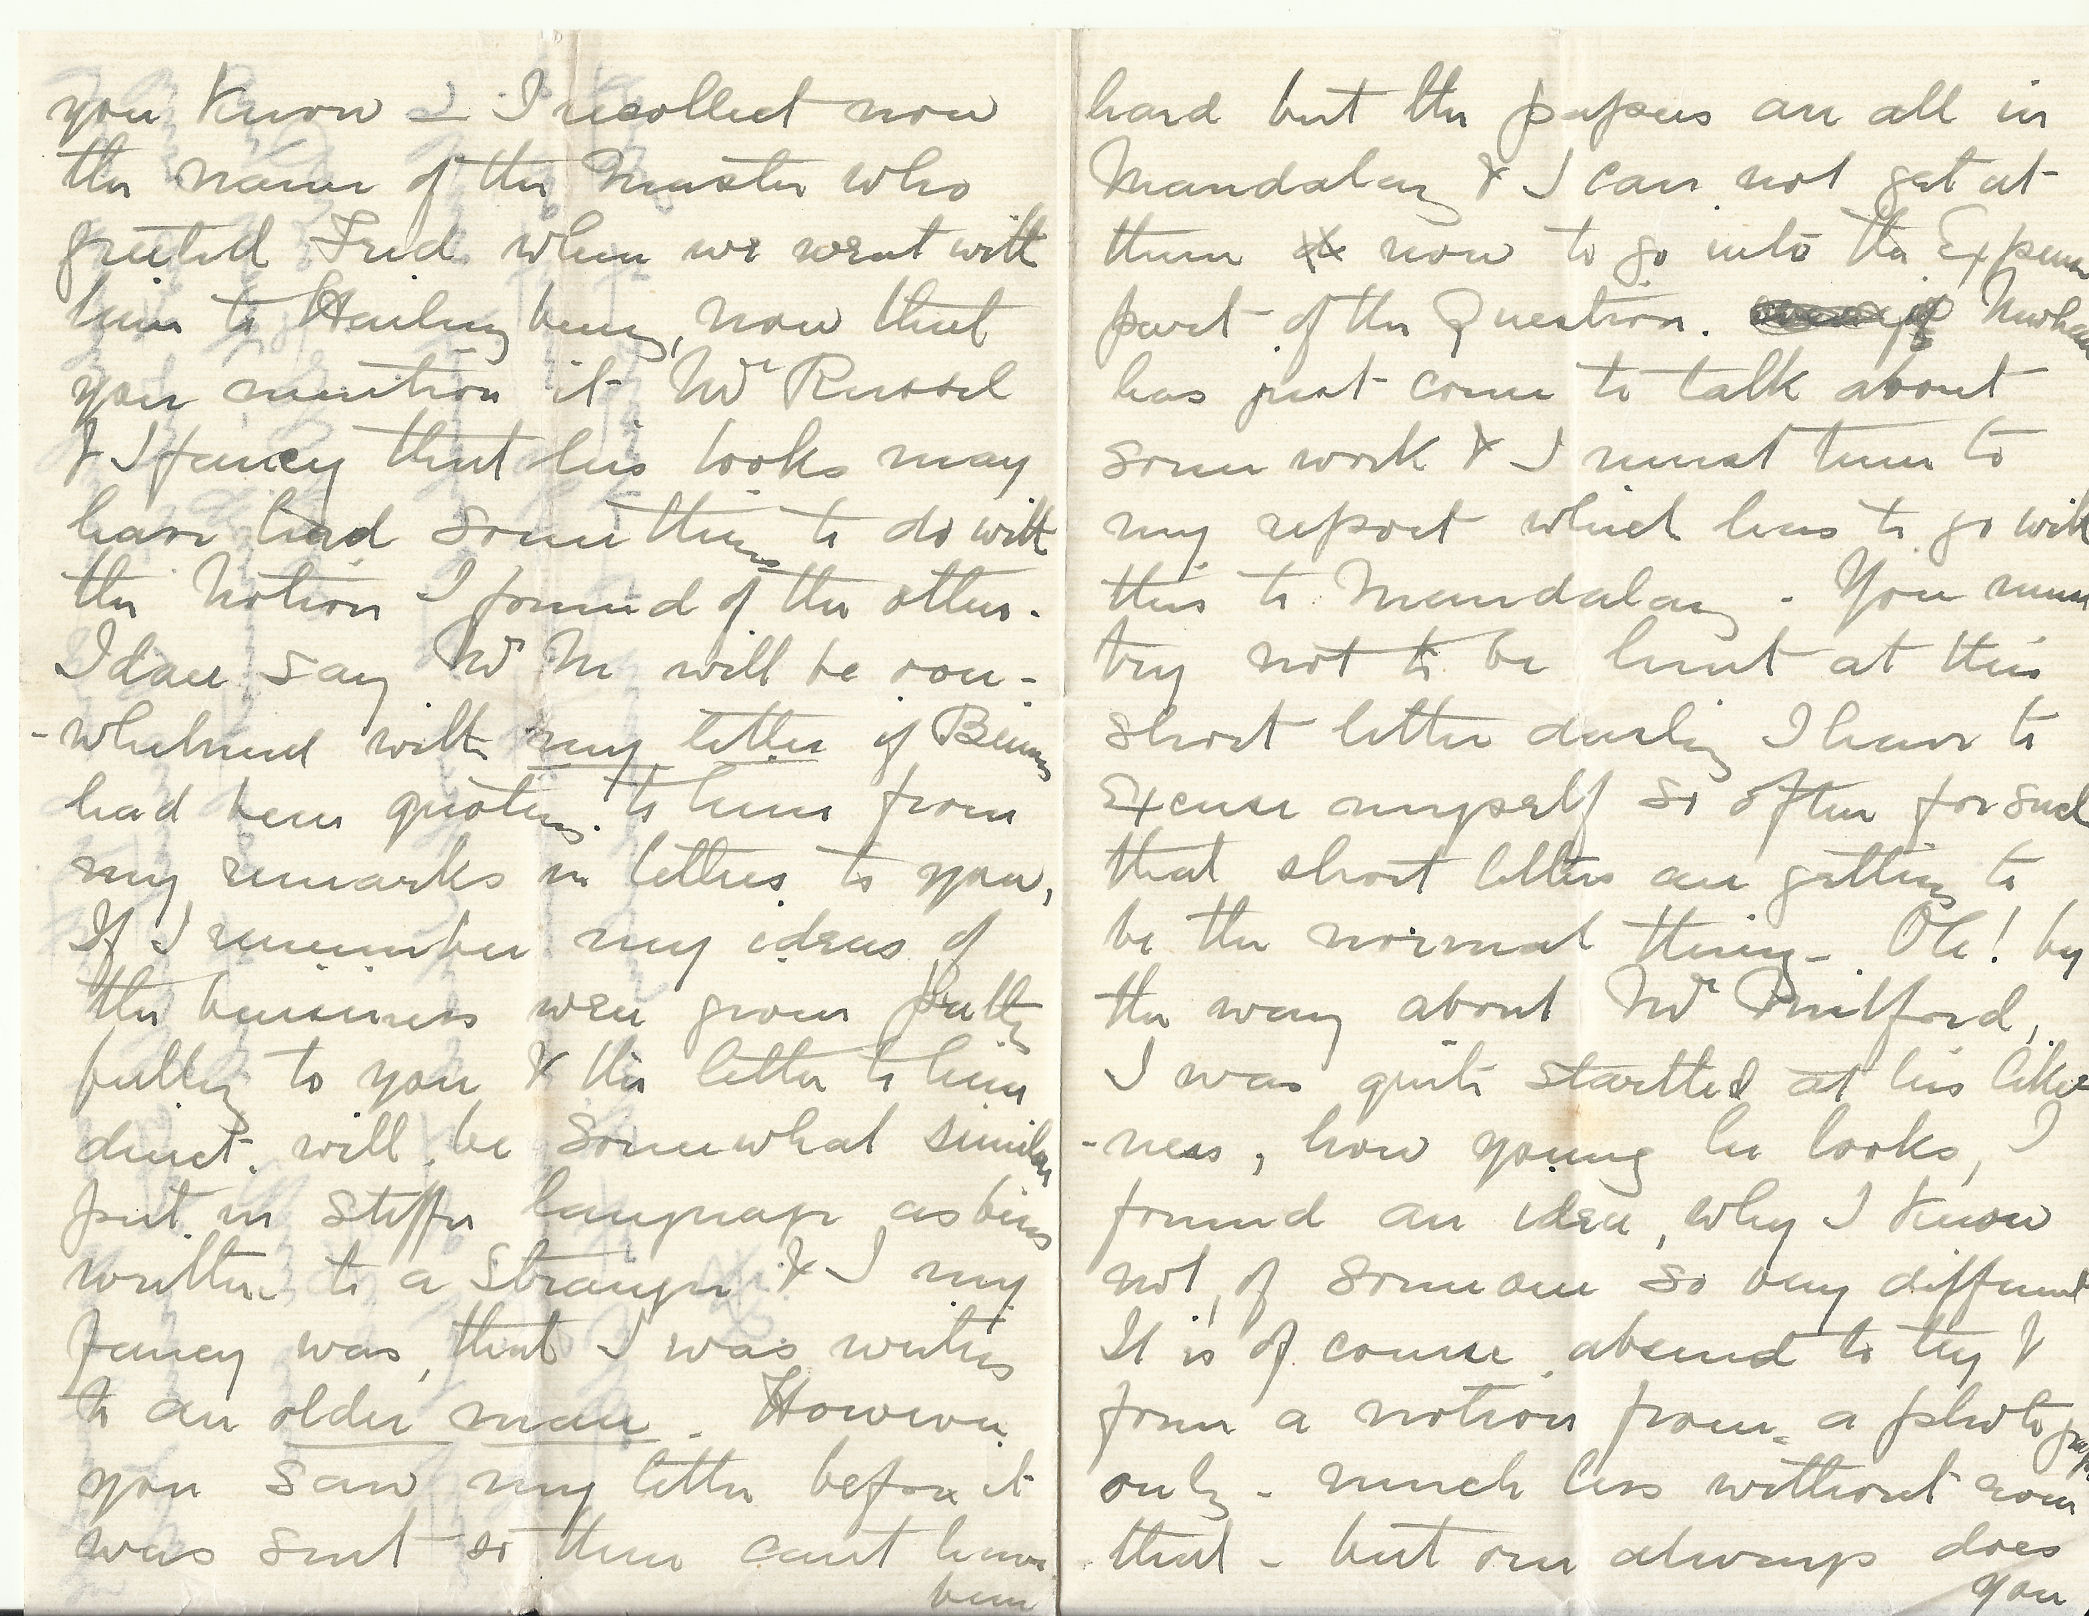 you know – I recollect now
the name of the Master who
greeted Fred when we went with
him to Haileybury, now that
you mention it Mr Russel
& I fancy that his looks may
have had something to do with
the Notion I formed of the other.
I dare say Mr M will be
-whelmed with my letter if
had been quoting to him from
my remarks in letters to you,
If I remember my ideas of
the business were given pretty
fully to you & the letter to him
direct. will be somewhat similar
put in stiffer language as being
written to a Stranger & I my
fancy was, that I was writing
to an older man. However
you saw my letter before it
was sent so there cant have
been
hard but the papers are all in
Mandalay & I can not get at
them now to go into the Expense
part of the Question.
has just come to talk about
some work & I must turn to
my report which has to go with
this to Mandalay - You must
try not to be hurt at this
short letter darling I have to
Excuse myself so often for such
that short letters are getting to
be the normal thing - Oh! by
the way about Mr Milford,
I was quite startled at his like
-ness, how young he looks, I
formed an idea, why I know
not, of someone so very different
It is of course absurd to try &
form a notion from a photograph
only - much less without even
that - but one always does
you